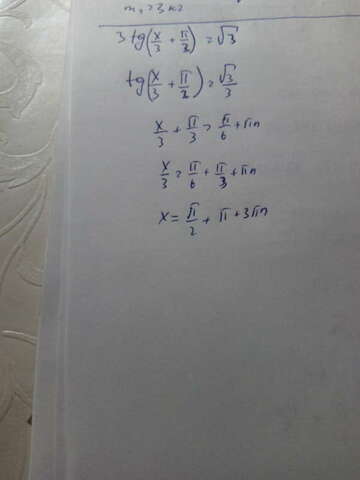 m₁ = 3 кг
3 tg(x/3 + π/2) = √3
tg(x/3 + π/2) = √3/3
x/3 + π/3 = π/6 + πn
x/3 = π/6 + π/3 + πn
x = π/2 + π + 3πn